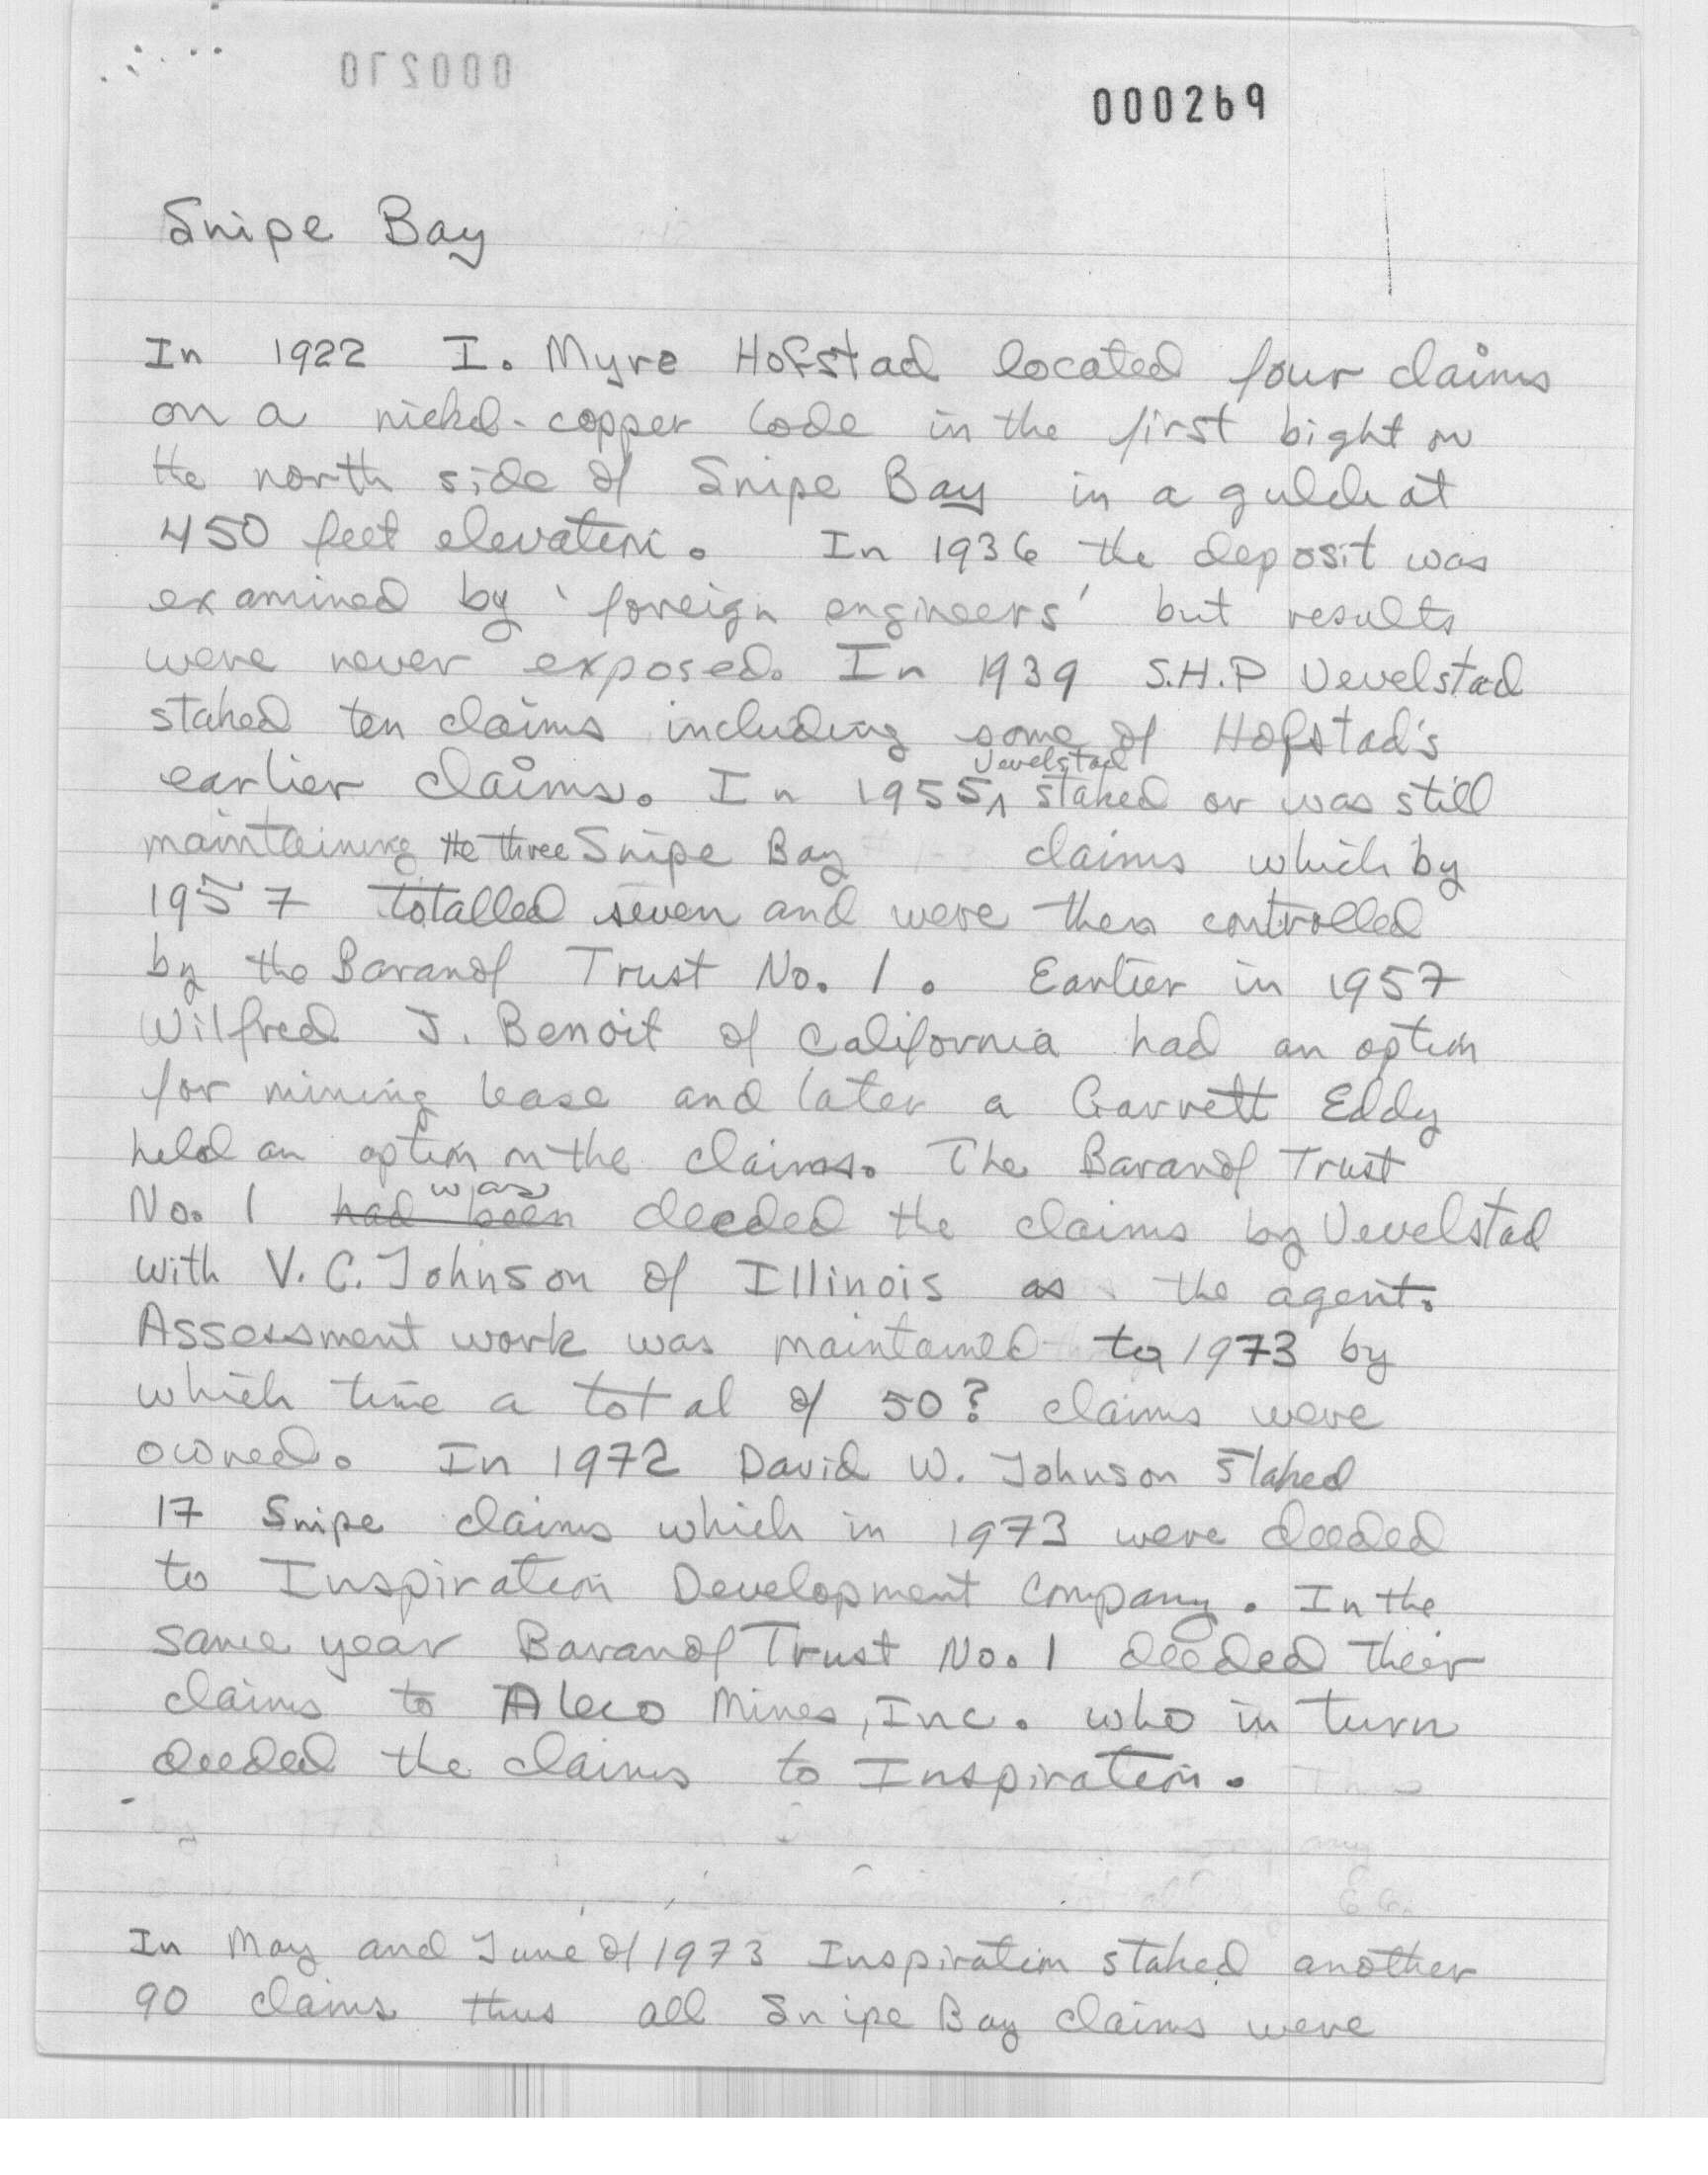 000269
Snipe Bay
In 1922 I. Myre Hofstad located four claims
on a nickel-copper lode in the first bight on
the north side of Snipe Bay in a gulch at
450 feet elevation. In 1936 the deposit was
examined by 'foreign engineers' but results
were never exposed. In 1939 S.H.P Vevelstad
staked ten claims including some of Hofstad's
earlier claims. In 1955 Vevelstad staked or was still
maintaining the three Snipe Bay claims which by
1957 totalled seven and were then controlled
by the Baranof Trust No. 1. Earlier in 1957
Wilfred J. Benoit of California had an option
for mining lease and later a Garrett Eddy
held an option on the claims. The Baranof Trust
No. 1 had been was deeded the claims by Vevelstad
with V. C. Johnson of Illinois as the agent.
Assessment work was maintained to 1973 by
which time a total of 50? claims were
owned. In 1972 David W. Johnson staked
17 Snipe claims which in 1973 were deeded
to Inspiration Development Company. In the
same year Baranof Trust No. 1 deeded their
claims to Aleco Mines, Inc. who in turn
deeded the claims to Inspiration.
In May and June of 1973 Inspiration staked another
90 claims thus all Snipe Bay claims were